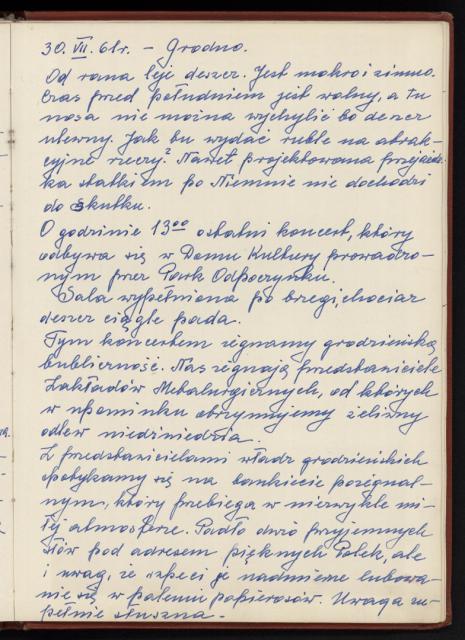 30. VII. 61r. – Grodno.
Od rana leje deszcz. Jest mokro i zimno.
Czas przed południem jest wolny, a tu
nosa nie można wychylić bo deszcz
ulewny. Jak tu wydać ruble na atrak-
cyjne rzeczy? Nawet projektowana przejażdż-
ka statkiem po Niemnie nie dochodzi
do skutku.
O godzinie 13⁰⁰ ostatni koncert, który
odbywa się w Domu Kultury prowadzo-
nym przez Park Odpoczynku.
Sala wypełniona po brzegi, chociaż
deszcz ciągle pada.
Tym koncertem żegnamy grodzieńską
publiczność. Nas żegnają przedstawiciele
Zakładów Metalurgicznych, od których
w upominku otrzymujemy żeliwny
odlew niedźwiedzia.
Z przedstawicielami władz grodzieńskich
spotykamy się na bankiecie pożegnal-
nym, który przebiega w niezwykle mi-
łej atmosferze. Padło dużo przyjemnych
słów pod adresem pięknych Polek, ale
i uwag, że szpeci je nadmierne lubowa-
nie się w paleniu papierosów. Uwaga zu-
pełnie słuszna. –